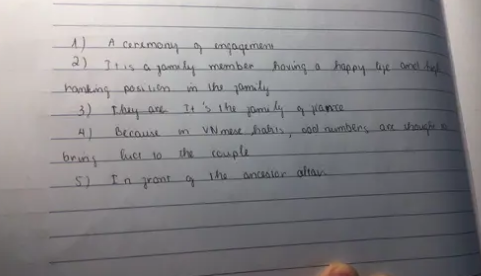 1) A ceremony of engagement
2) It is a family member having a happy life and high
ranking position in the family
3) They are It's the family of fiance
4) Because in VNmese habits, odd numbers, are thought to
bring luck to the couple
5) In front of the ancestor altar